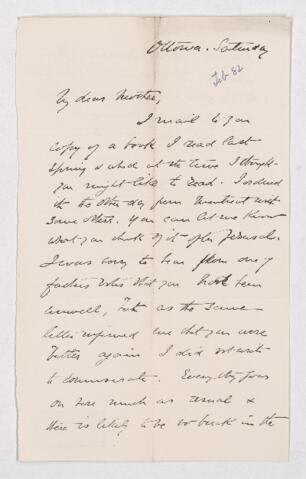 Ottawa. Saturday
Feb 82
My dear Mother,
I mail to you
copy of a book I read last
Spring & which at the time I thought
you might like to read. I ordered
it the other day from Montreal with
some others. You can let me know
what you think of it after perusal.
I was sorry to hear from one of
father's notes that you had been
unwell, but as the same
letter informed me that you were
better again I did not write
to commiserate. Everything goes
on here much as usual &
there is likely to be no break in the